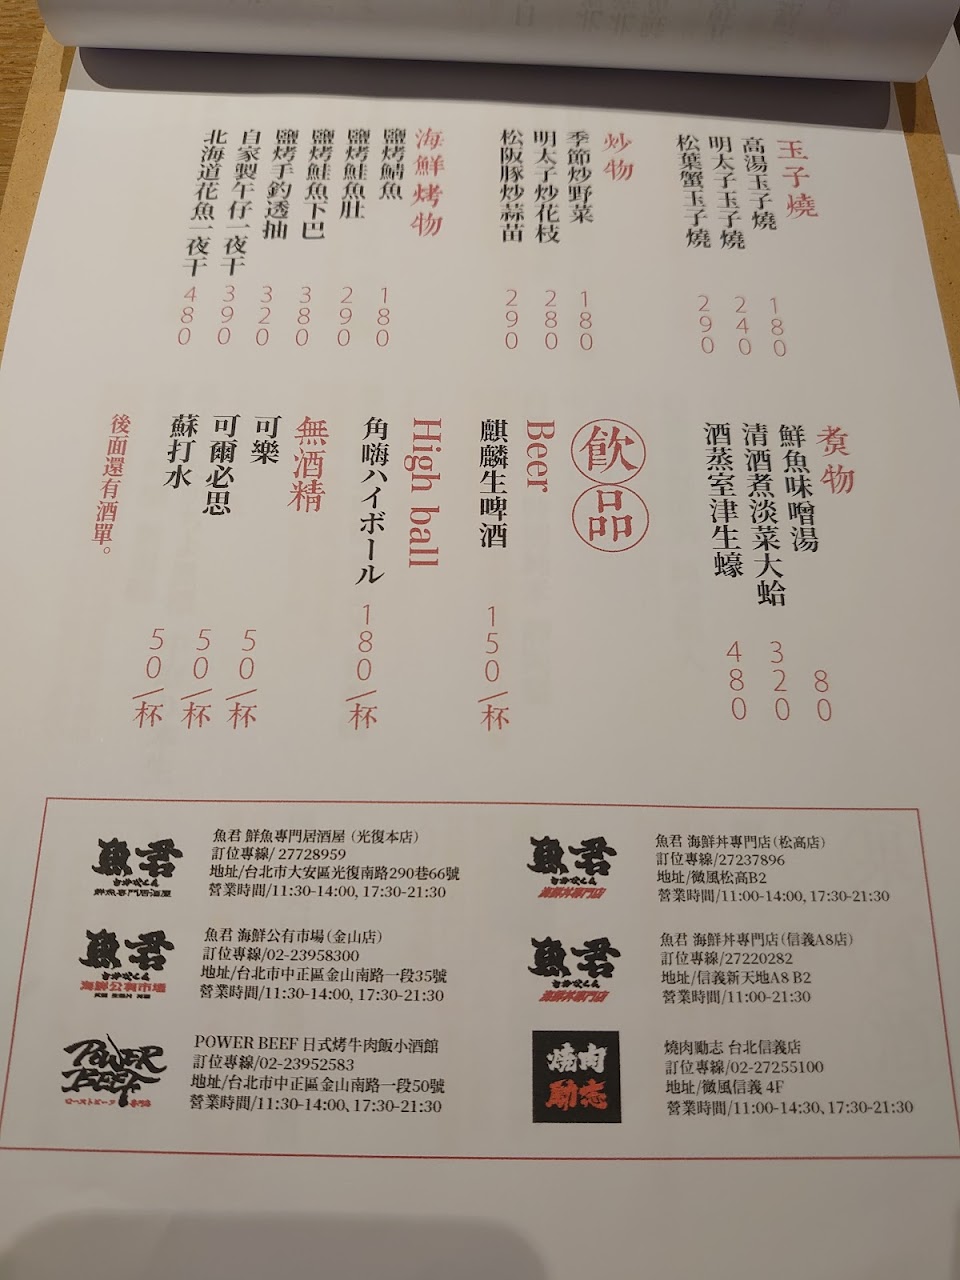 玉子燒
高湯玉子燒 180
明太子玉子燒 240
松葉蟹玉子燒 290
炒物
季節炒野菜 180
明太子炒花枝 280
松阪豚炒蒜苗 290
海鮮烤物
鹽烤鯖魚 180
鹽烤鮭魚肚 290
鹽烤鮭魚下巴 380
鹽烤手釣透抽 320
自家製午仔一夜干 390
北海道花魚一夜干 480
煮物
鮮魚味噌湯 80
清酒煮淡菜大蛤 320
酒蒸室津生蠔 480
飲品
Beer
麒麟生啤酒 150/杯
High ball
角嗨ハイボール 180/杯
無酒精
可樂 50/杯
可爾必思 50/杯
蘇打水 50/杯
後面還有酒單。
魚君
鮮魚專門居酒屋
魚君 鮮魚專門居酒屋 (光復本店)
訂位專線/ 27728959
地址/台北市大安區光復南路290巷66號
營業時間/11:30-14:00, 17:30-21:30
魚君
海鮮公有市場
魚君 海鮮公有市場(金山店)
訂位專線/02-23958300
地址/台北市中正區金山南路一段35號
營業時間/11:30-14:00, 17:30-21:30
POWER
BEEF
ローストビーフ
POWER BEEF 日式烤牛肉飯小酒館
訂位專線/02-23952583
地址/台北市中正區金山南路一段50號
營業時間/11:30-14:00、17:30-21:30
魚君
海鮮丼專門店
魚君 海鮮丼專門店(松高店)
訂位專線/27237896
地址/微風松高B2
營業時間/11:00-14:00, 17:30-21:30
魚君
海鮮丼專門店
魚君 海鮮丼專門店(信義A8店)
訂位專線/27220282
地址/信義新天地A8 B2
營業時間/11:00-21:30
燒肉
勵志
燒肉勵志 台北信義店
訂位專線/02-27255100
地址/微風信義 4F
營業時間/11:00-14:30, 17:30-21:30